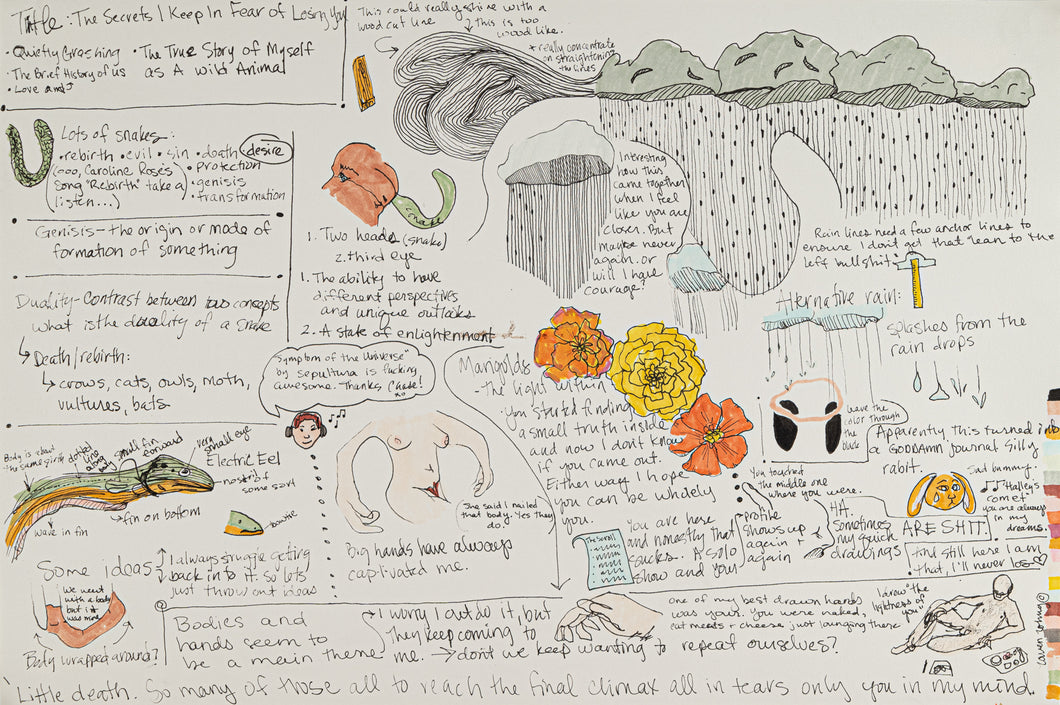 Title: The Secrets I Keep In Fear of Losing You
• Quietly Grashing
• The True Story of Myself
as A Wild Animal
• The Brief History of us
• Love and
This could really shine with a
wood cut line
This is too
wood like.
* really concentrate
on straightening
the lines
Lots of snakes:
• rebirth • evil • sin • death desire
(ooo, Caroline Roses
song "Rebirth" take a
listen...)
• protection
• genisis
• transformation
Genisis - the origin or mode of
formation of something
Duality - Contrast between two concepts
what is the duality of a snake
Death/rebirth:
crows, cats, owls, moth,
vultures, bats
snake
1. Two heads (snake)
2. third eye
1. The ability to have
different perspectives
and unique outlooks
2. A state of enlightenment
Interesting
how this
came together
when I feel
like you are
closer. But
maybe never
again. or
will I have
courage?
Rain lines need a few anchor lines to
ensure I don't get that lean to the
left bullshit.
Alternative rain:
splashes from the
rain drops
leave the
color through
the black
"Symptom of the Universe"
by sepultura is fucking
awesome. Thanks, Chase!
xo
Marigolds
- The light within
- You started finding
a small truth inside
and now I don't know
if you came out.
Either way I hope
you can be wholely
you.
Body is about
the same girth
dotted
line
along
body
small fin
forward
very
small eye
Electric Eel
nostr of
some sort
fin on bottom
wave in fin
bowfin
She said I nailed
that body. Yes they
do!
Big hands have always
captivated me.
The Scroll
You are here
and honestly that
sucks. A solo
show and you
You touched
the middle one
where you were.
profile
shows up
again +
again
HA.
Sometimes
my quick
drawings
ARE SHIT.
Apparently this turned into
a GODDAMN journal silly
rabit.
Sad bunny.
"Halley's
comet"
you are always
in my
dreams.
And still here I am
that, I'll never lose
Some ideas
I always struggle getting
back into it. so lets
just throw out ideas
We went
with a body
but it
was mine
Body wrapped around?
Bodies and
hands seem to
be a main theme
I worry I out do it, but
They keep coming to
me. → don't we keep wanting to repeat ourselves?
one of my best drawn hands
was yours. You were naked,
eat meats + cheese just lounging there
I drew "the
lightness of
you"
'Little death. So many of those all to reach the final climax all in tears only you in my mind.